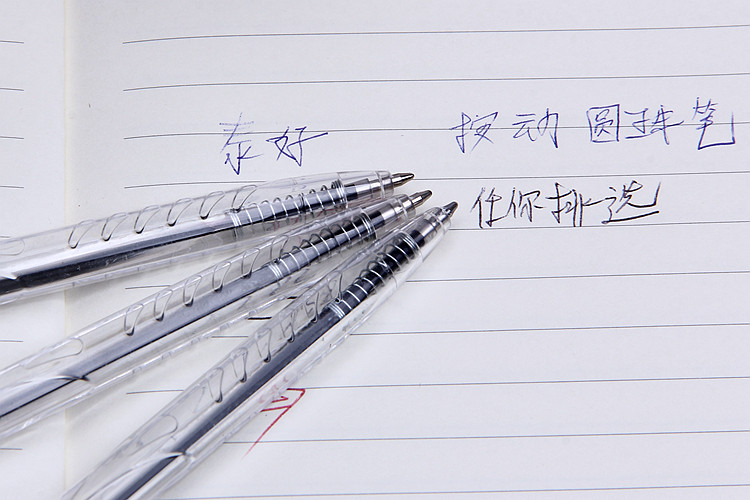 泰好 按动圆珠笔
任你挑选